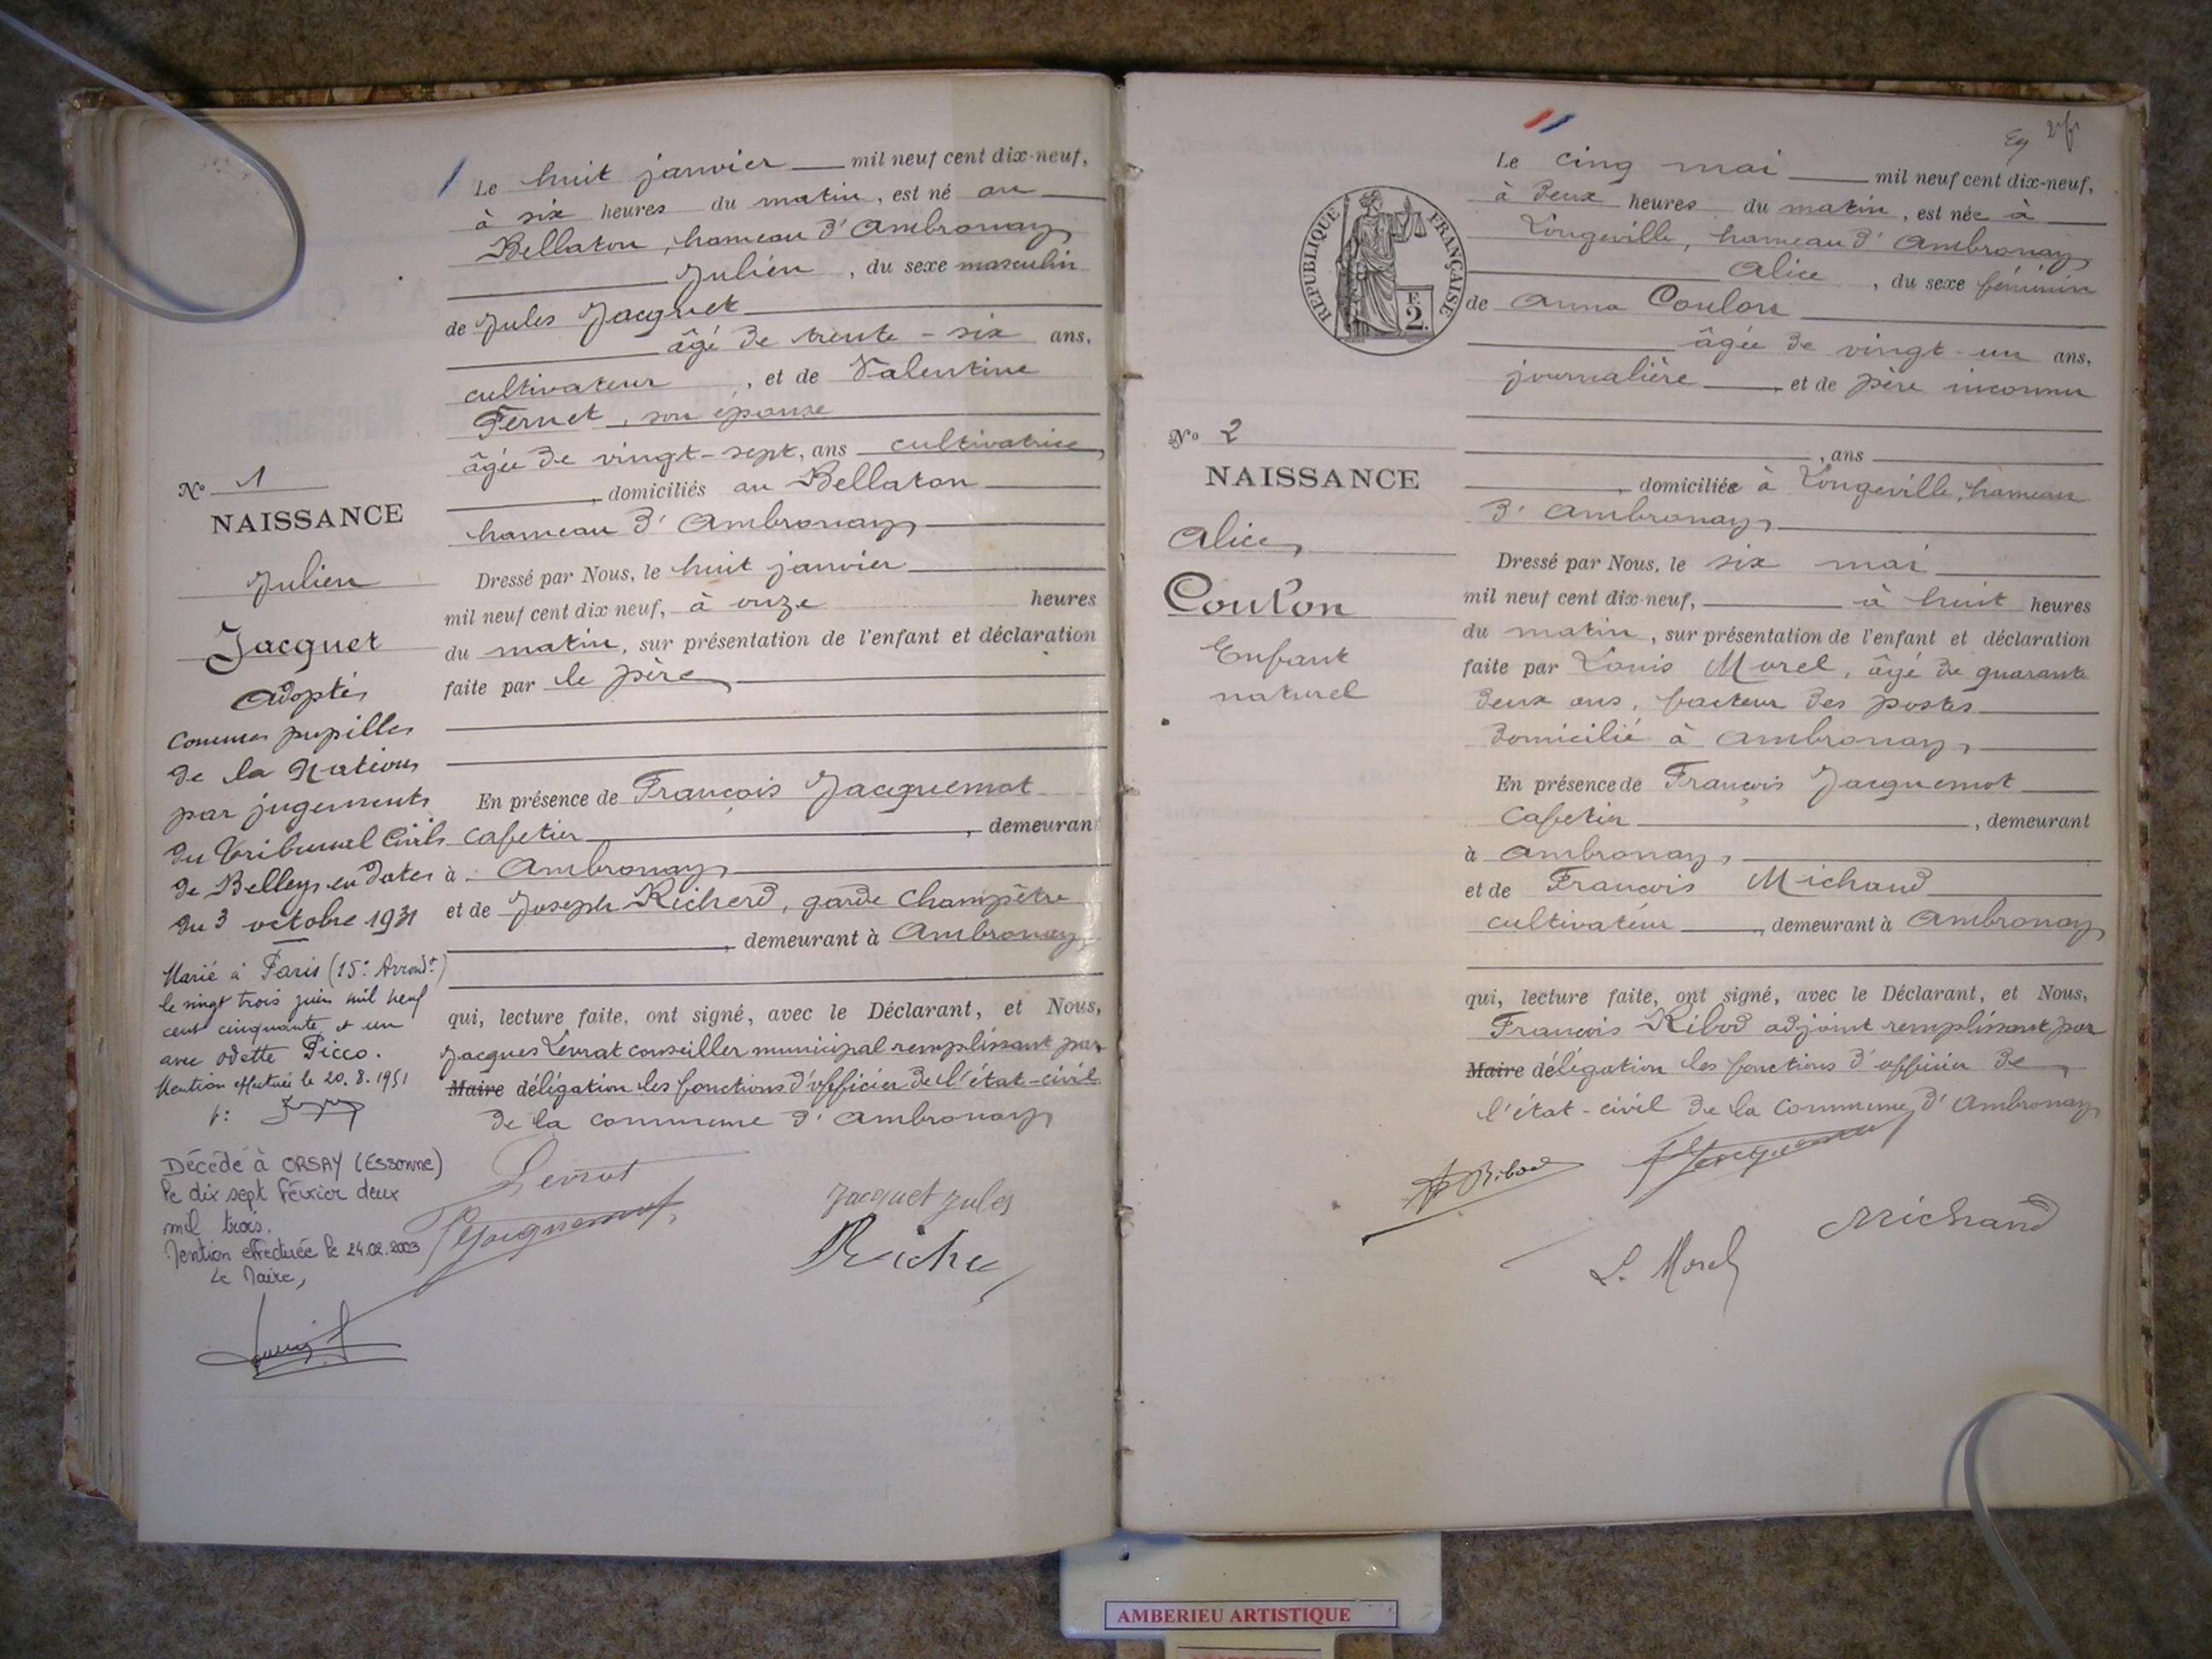 Le huit janvier mil neuf cent dix-neuf,
à six heures du matin, est né au
Bellaton, hameau d'Ambronay
Julien, du sexe masculin
de Jules Jacquet
âgé de trente-six ans,
cultivateur, et de Valentine
Fernet, son épouse
âgée de vingt-sept, ans cultivatrice,
, domiciliés au Bellaton
hameau d'Ambronay
Dressé par Nous, le huit janvier
mil neuf cent dix neuf, à onze heures
du matin, sur présentation de l'enfant et déclaration
faite par le père
En présence de François Jacquemot
cafetier, demeurant
à Ambronay
et de Joseph Richerd, garde champêtre
, demeurant à Ambronay
qui, lecture faite, ont signé, avec le Déclarant, et Nous,
Jacques Levrat conseiller municipal remplissant par
Maire délégation les fonctions d'officier de l'état-civil
de la commune d'Ambronay
Levrat
Jacquet Jules
FJacquemot
N° 1
NAISSANCE
Julien
Jacquet
Adopté
comme pupille
de la Nation
par jugement
du Tribunal Civil
de Belley en date
du 3 octobre 1931
Marié à Paris (15e Arrondt)
le vingt trois juin mil neuf
cent cinquante et un
avec Odette Picco.
Mention effectuée le 20.8.1951
Décédé à ORSAY (Essonne)
le dix sept Février deux
mil trois.
Mention effectuée le 24.02.2003
Le Maire,
2
Le cinq mai mil neuf cent dix-neuf,
à deux heures du matin, est née à
Longeville, hameau d'Ambronay
Alice, du sexe féminin
de Anna Coulon
âgée de vingt-un ans,
journalière, et de père inconnu
, ans
, domiciliée à Longeville, hameau
d'Ambronay
Dressé par Nous, le six mai
mil neuf cent dix-neuf, à huit heures
du matin, sur présentation de l'enfant et déclaration
faite par Louis Morel, âgé de quarante
deux ans, facteur des postes
domicilié à Ambronay
En présence de François Jacquemot
Cafetier, demeurant
à Ambronay
et de François Michaud
cultivateur, demeurant à Ambronay
qui, lecture faite, ont signé, avec le Déclarant, et Nous,
François Ribod adjoint remplissant par
Maire délégation les fonctions d'officier de
l'état-civil de la commune d'Ambronay
Ribod
FJacquemot
L. Morel
Michaud
REPUBLIQUE FRANÇAISE
F.
2.
N° 2
NAISSANCE
Alice
Coulon
Enfant
naturel
AMBERIEU ARTISTIQUE